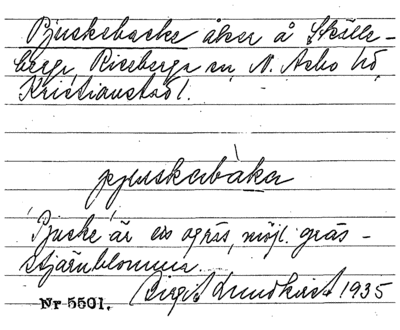 Pjuskebacke åker å Skälle-
berga, Riseberga sn, N. Åsbo hd,
Kristianstad l.
pjuskabàka
'Pjuske' är ett ogräs, möjl. gräs-
stjärnblomma.
Birgit Lundkvist 1935
Nr 5501.